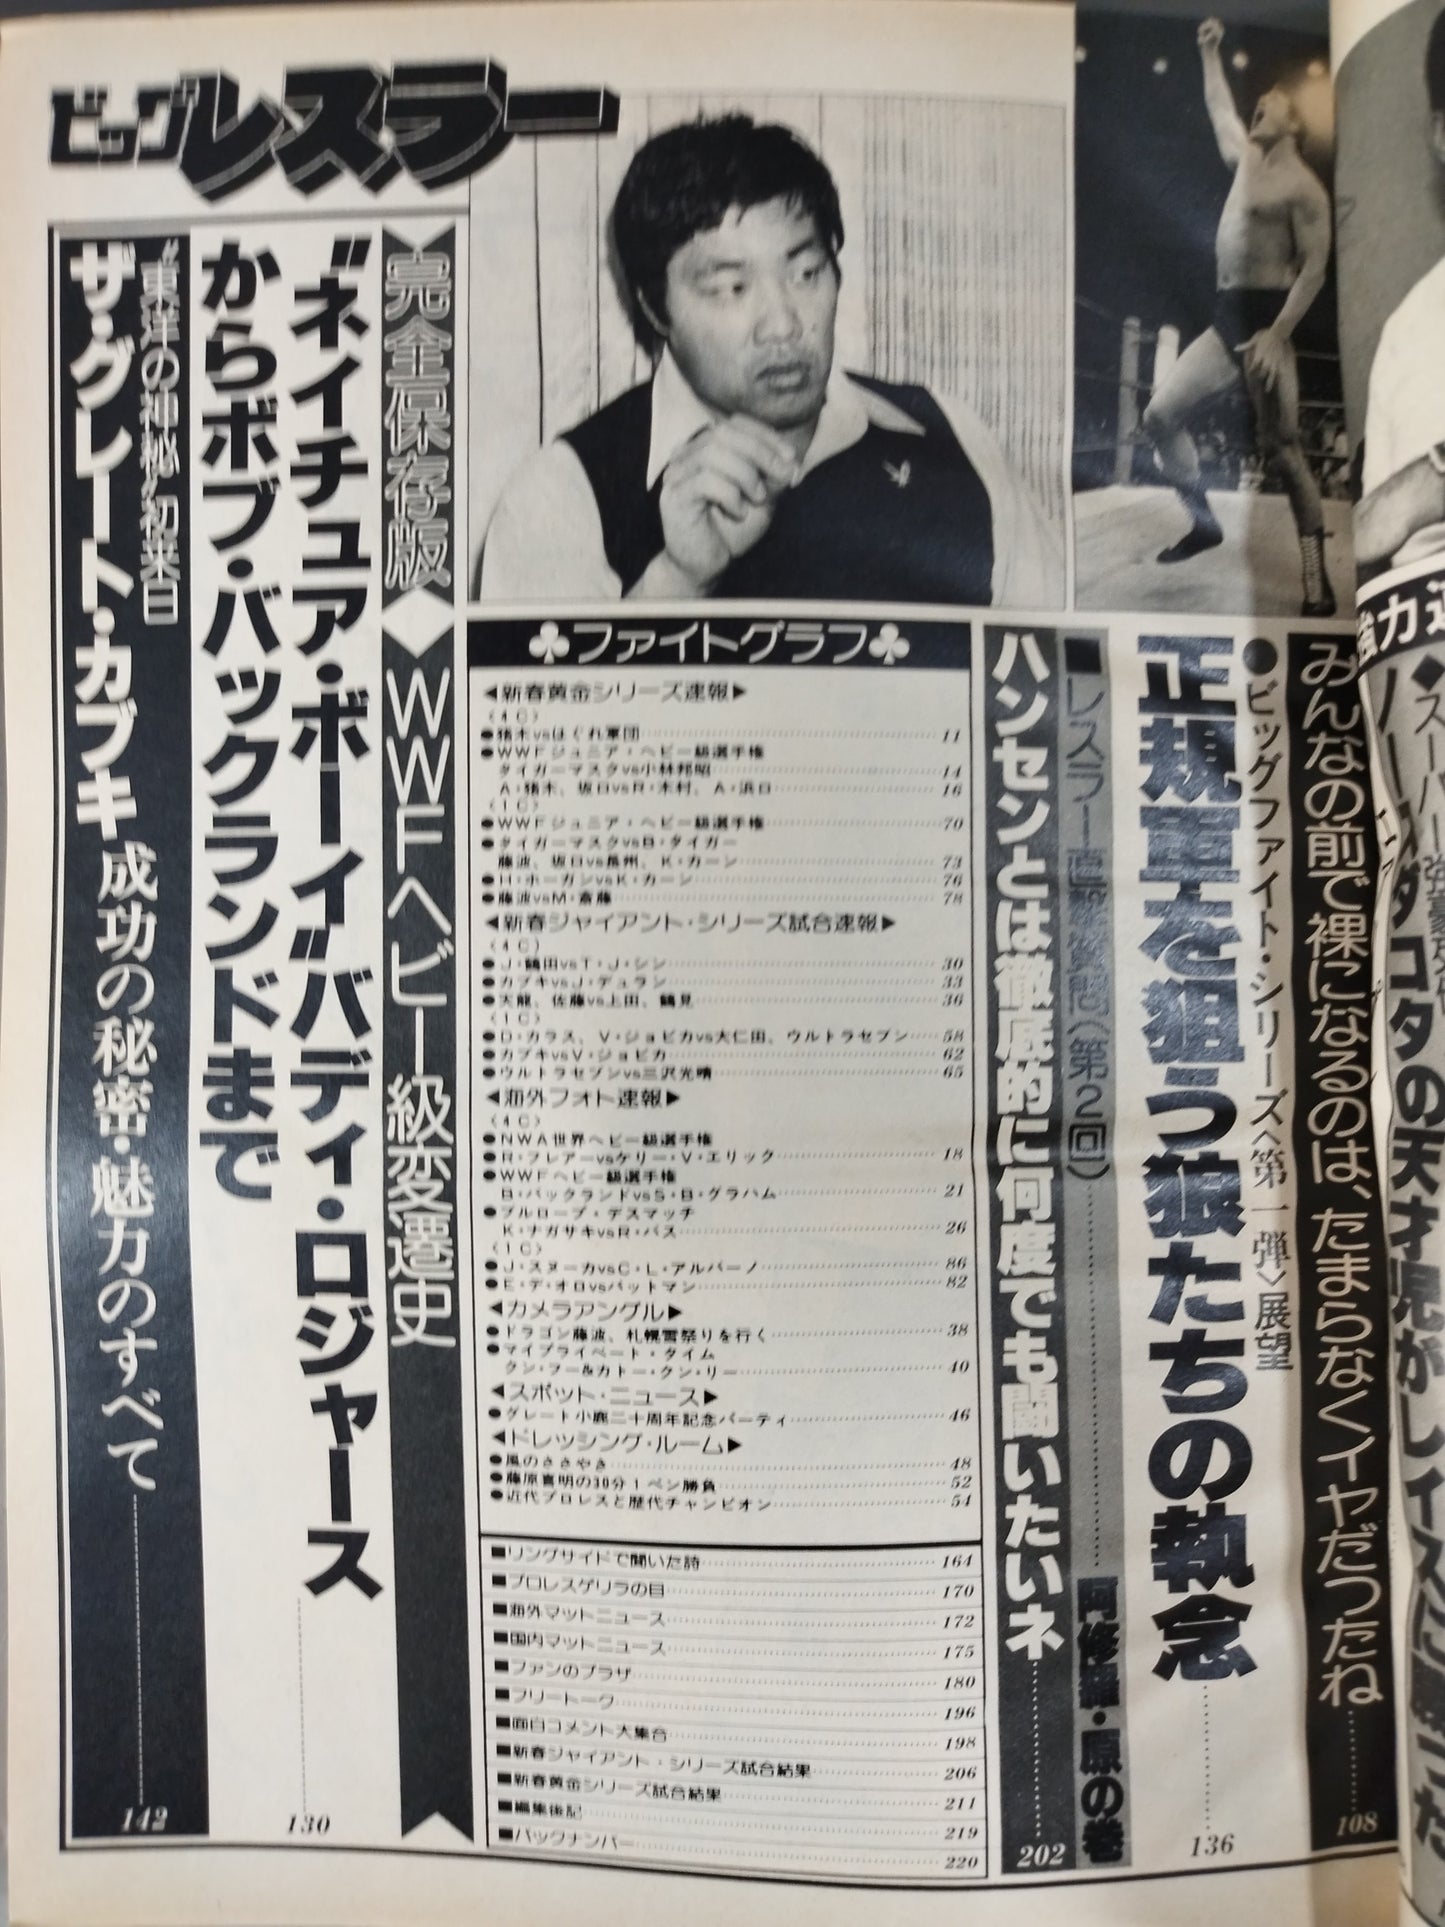 ビッグレスラー
強力
みんなの前で裸になるのは、たまらなくイヤだったね
108
●ビッグファイト・シリーズ〈第一弾〉展望
正規軍を狙う狼たちの執念
136
■レスラー直撃筆記(第2回)
阿修羅・原の巻
ハンセンとは徹底的に何度でも闘いたいネ
202
♣ファイトグラフ♣
◀新春黄金シリーズ速報▶
(4C)
●猪木vsはぐれ軍団 11
●WWFジュニア・ヘビー級選手権
タイガーマスクvs小林邦昭 14
A・猪木、坂口vsR・木村、A・浜口 16
(1C)
●WWFジュニア・ヘビー級選手権 70
●タイガーマスクvsB・タイガー
藤波、坂口vs長州、K・カーン 73
●H・ホーガンvsK・カーン 76
●藤波vsM・斎藤 78
◀新春ジャイアント・シリーズ試合速報▶
(4C)
●J・鶴田vsT・J・シン 30
●カブキvsJ・デュラン 33
●天龍、佐藤vs上田、鶴見 36
(1C)
●D・カラス、V・ジョビカvs大仁田、ウルトラセブン 58
●カブキvsV・ジョビカ 62
●ウルトラセブンvs三沢光晴 65
◀海外フォト速報▶
(4C)
●NWA世界ヘビー級選手権
●R・フレアーvsケリー・V・エリック 18
●WWFヘビー級選手権
B・バックランドvsS・B・グラハム 21
●ブルロープ・デスマッチ
K・ナガサキvsR・バス 26
(1C)
●J・スヌーカvsC・L・アルバーノ 86
●E・デ・オロvsバットマン 82
◀カメラアングル▶
●ドラゴン藤波、札幌雪祭りを行く 38
●マイプライベート・タイム
クン・フー&カトー・クン・リー 40
◀スポット・ニュース▶
●グレート小鹿二十周年記念パーティ 46
◀ドレッシング・ルーム▶
●風のささやき 48
●藤原喜明の30分1ペン勝負 52
●近代プロレスと歴代チャンピオン 54
■リングサイドで聞いた詩 164
■プロレスゲリラの目 170
■海外マットニュース 172
■国内マットニュース 175
■ファンのプラザ 180
■フリートーク 196
■面白コメント大集合 198
■新春ジャイアント・シリーズ試合結果 206
■新春黄金シリーズ試合結果 211
■編集後記 219
■バックナンバー 220
完全保存版◆WWFヘビー級変遷史
"ネイチュア・ボーイ"バディ・ロジャース
からボブ・バックランドまで
130
"東洋の神秘"初来日
ザ・グレート・カブキ 成功の秘密・魅力のすべて
142